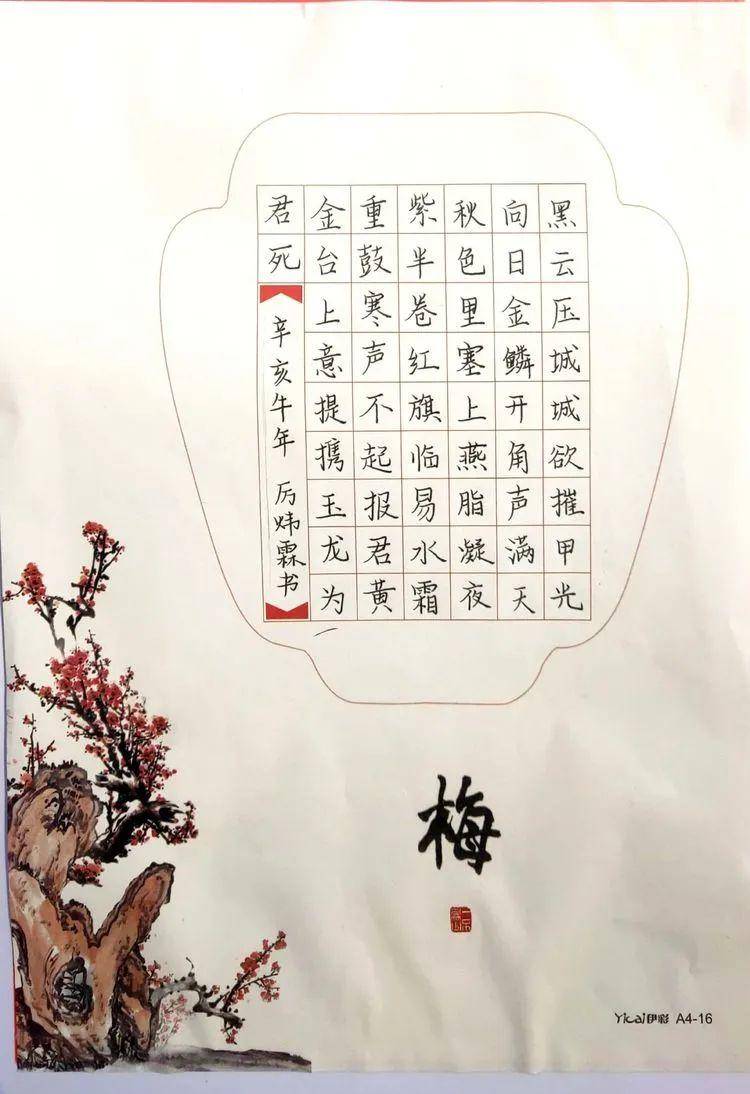 黑云压城城欲摧甲光
向日金鳞开角声满天
秋色里塞上燕脂凝夜
紫半卷红旗临易水霜
重鼓寒声不起报君黄
金台上意提携玉龙为
君死
辛亥牛年 厉炜霖书
梅
Yicai伊彩 A4-16